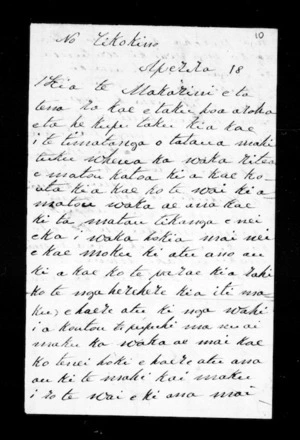 10
No Tikokino
Aperira 18
Kia te Makarini e ta
tena ra koe e taku hoa aroha
e ta he kupu taku kia koe
i te timatanga o taua mahi
tuku whenua ka waka ritea
e matou katoa ki a koe ko
ata ki a koe ko te wai ki a
matou waka ae ana koe
ki ta matau tikanga e nei
eka i waka hokia mai nei
e koe moku ki atu ano au
ki a koe ko te perae kia rahi
ko te nga herehere kia iti ma
ku e haere atu ki nga wahi
i a koutou ma
maku ka waka ae mai koe
ko tenei hoki e haere atu ana
au ki te mahi kai maku
i ro te wai e ki ana mai